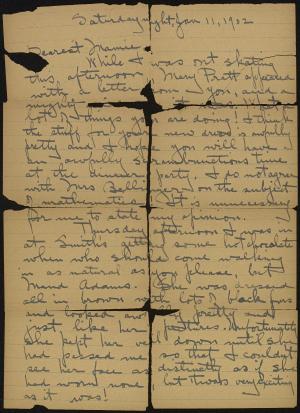 Saturday night, Jan 11, 1902
Dearest Mamie
While I was out skating
this afternoon Mary Pratt appeared
with a letter from you, and a
mighty
lot of things you are doing! I think
the stuff for your new dress is awfully
pretty and I hope you will have
an awfully time
at the dinner party, I do not agree
with Mrs Bell on the subject
of mathematics. It is unnecessary
for me to state my opinion.
Thursday afternoon I was in
at Smiths getting some hot chocolate
when who should come walking
in as natural as you please, but
Maud Adams. She was dressed
all in brown with lots of black furs
and looked and
just like her pictures. Unfortunately
she kept her veil down until she
had passed me so that I couldn't
see her face as distinctly as if she
had worn none, but it was very exciting
as it was!